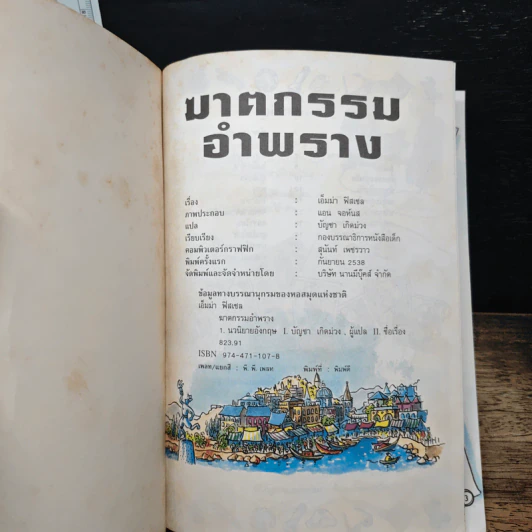 ฆาตกรรม
อำพราง
เรื่อง : เอ็มม่า ฟิสเชล
ภาพประกอบ : แอน จอห์นส
แปล : บัญชา เกิดม่วง
เรียบเรียง : กองบรรณาธิการหนังสือเด็ก
คอมพิวเตอร์กราฟฟิก : สุนันท์ เพชรวาว
พิมพ์ครั้งแรก : กันยายน 2538
จัดพิมพ์และจัดจำหน่ายโดย : บริษัท นานมีบุ๊คส์ จำกัด
ข้อมูลทางบรรณานุกรมของหอสมุดแห่งชาติ
เอ็มม่า ฟิสเชล
ฆาตกรรมอำพราง
1. นวนิยายอังกฤษ I. บัญชา เกิดม่วง, ผู้แปล II. ชื่อเรื่อง
823.91
ISBN 974-471-107-8
เพลท/แยกสี : พี. พี. เพลท พิมพ์ที่ : พิมพ์ดี